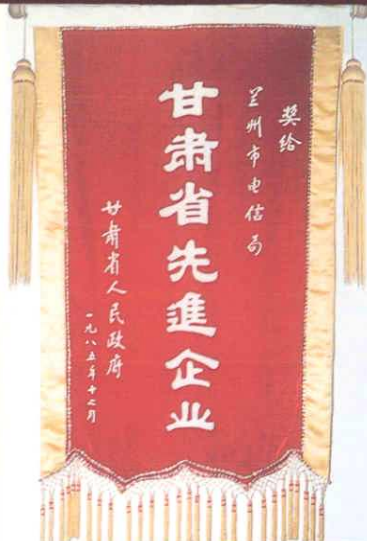 奖给
兰州市电信局
甘肃省先進企业
甘肃省人民政府
一九八五年十二月